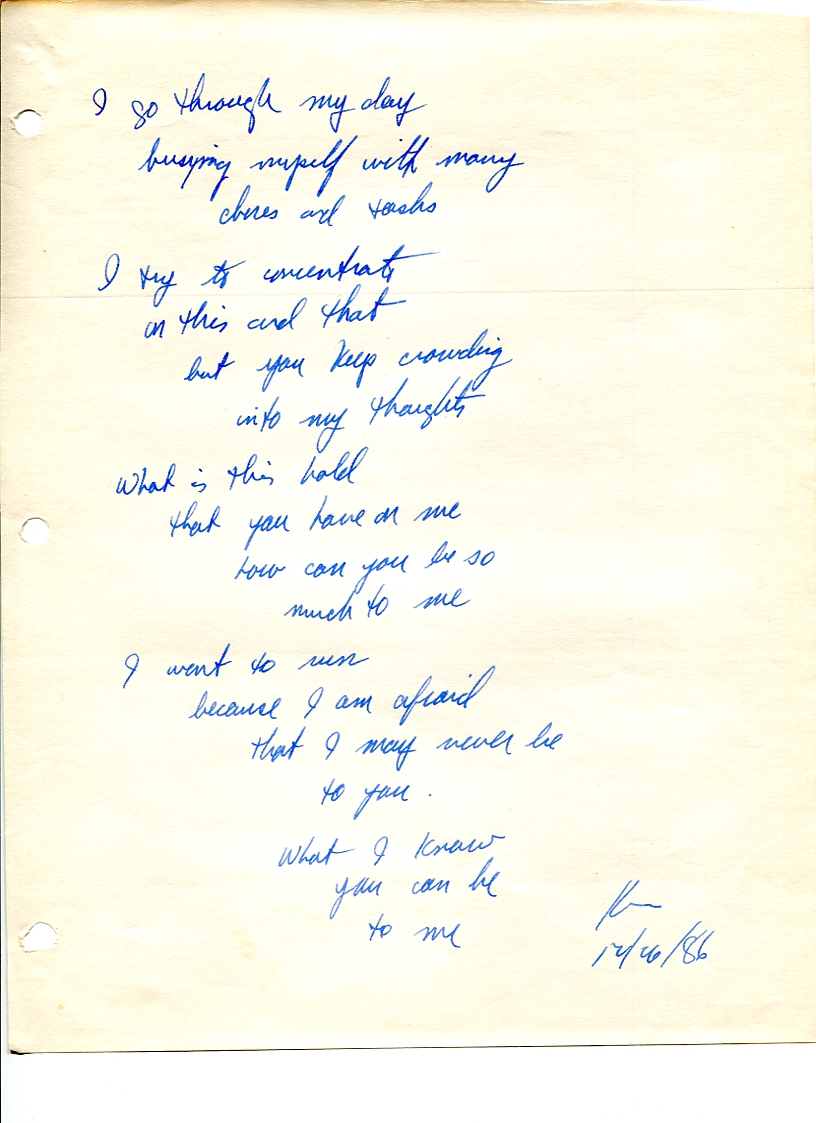 I go through my day
busying myself with many
chores and tasks
I try to concentrate
on this and that
but you keep crowding
into my thoughts
What is this hold
that you have on me
how can you be so
much to me
I want to run
because I am afraid
that I may never be
to you.
What I know
you can be
to me
/86